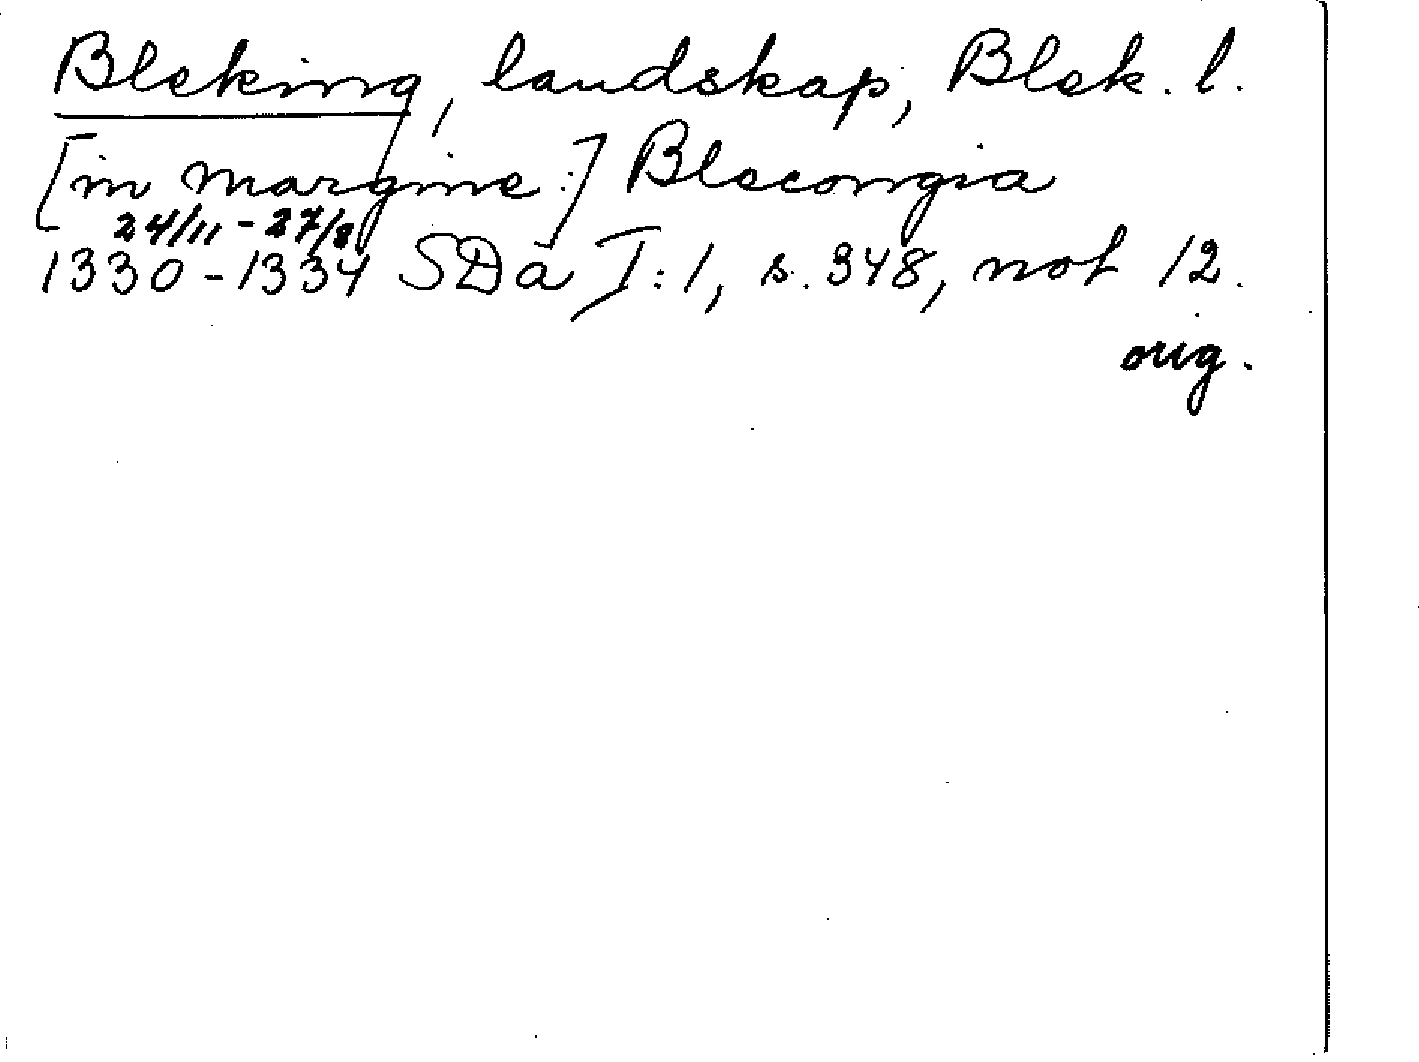 Bleking, landskap, Blek. l.
[in margine:] Blecongia
24/11 - 27/8
1330-1334 SDä I:1, s. 348, not 12.
orig.